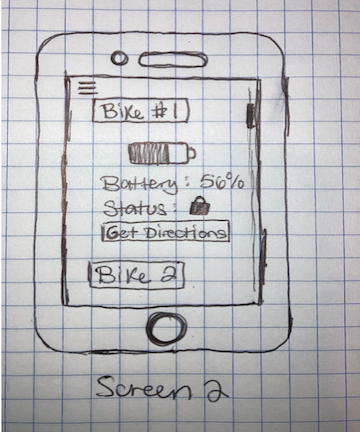 Bike #1
Battery: 56%
Status:
Get Directions
Bike 2
Screen 2